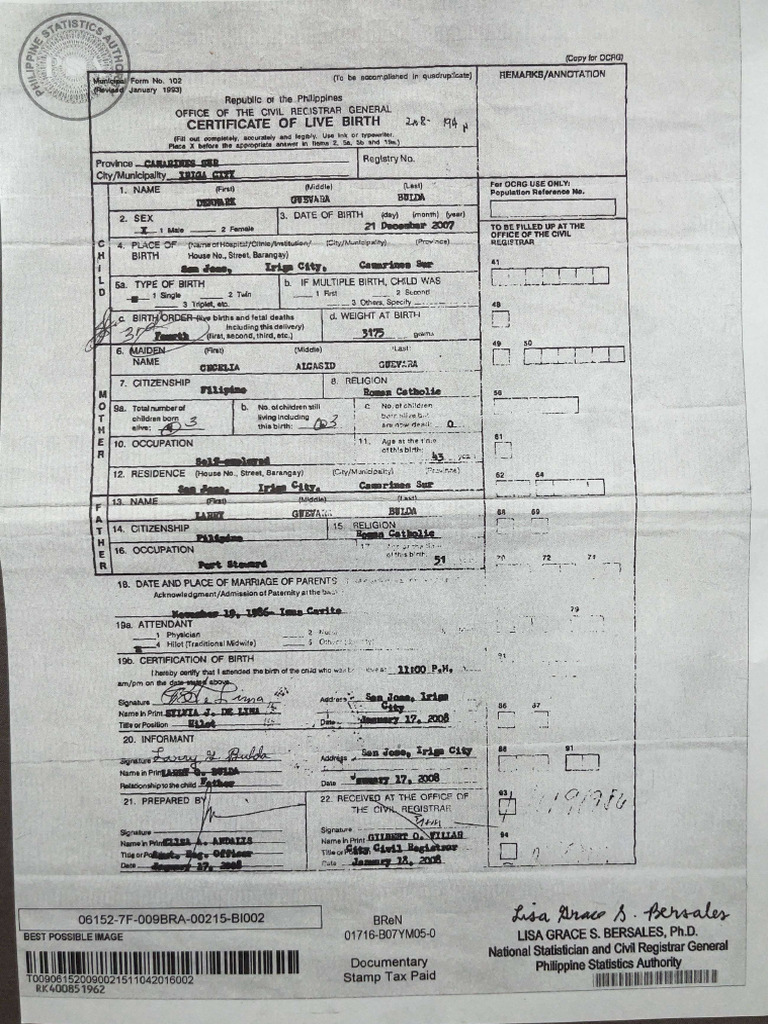 PHILIPPINE STATISTICS AUTHORITY
(Copy for OCRG)
Municipal Form No. 102 (To be accomplished in quadruplicate) REMARKS/ANNOTATION
(Revised January 1993)
Republic of the Philippines
OFFICE OF THE CIVIL REGISTRAR GENERAL
CERTIFICATE OF LIVE BIRTH
(Fill out completely, accurately and legibly. Use ink or typewriter.
Place X before the appropriate answer in Items 2, 5a, 5b and 19a.)
Province CAMARINES SUR Registry No.
City/Municipality IRIGA CITY
1. NAME (First) (Middle) (Last) For OCRG USE ONLY:
DENMARK GUEVARA BULDA Population Reference No.
2. SEX 3. DATE OF BIRTH (day) (month) (year) TO BE FILLED UP AT THE
X 1 Male 2 Female 21 December 2007 OFFICE OF THE CIVIL
REGISTRAR
CHILD
4. PLACE OF (Name of Hospital/Clinic/Institution/ (City/Municipality) (Province)
BIRTH House No., Street, Barangay)
San Jose, Iriga City, Camarines Sur 41
5a. TYPE OF BIRTH b. IF MULTIPLE BIRTH, CHILD WAS
1 Single 2 Twin 1 First 2 Second
3 Triplet, etc. 3 Others, Specify
48
c. BIRTH ORDER (live births and fetal deaths d. WEIGHT AT BIRTH
including this delivery)
Fourth (first, second, third, etc.) 3175 grams
49 50
6. MAIDEN (First) (Middle) (Last)
NAME CECELIA ALCASID GUEVARA
7. CITIZENSHIP 8. RELIGION
Filipino Roman Catholic 56
MOTHER
9a. Total number of b. No. of children still c. No. of children
children born living including born alive but
alive: 3 this birth: 3 are now dead: 0
10. OCCUPATION 11. Age at the time 61
Self-employed of this birth: 43 years
12. RESIDENCE (House No., Street, Barangay) (City/Municipality) (Province) 62 64
San Jose, Iriga City, Camarines Sur
FATHER
13. NAME (First) (Middle) (Last)
LARRY GUEVARA BULDA 68 69
14. CITIZENSHIP 15. RELIGION
Filipino Roman Catholic
16. OCCUPATION 17. Age at the time
Port Steward of this birth: 51 70 72 74
18. DATE AND PLACE OF MARRIAGE OF PARENTS
Acknowledgment/Admission of Paternity at the back
November 19, 1986- Imus Cavite 79
19a. ATTENDANT
1 Physician 2 Nurse
4 Hilot (Traditional Midwife)
19b. CERTIFICATION OF BIRTH
I hereby certify that I attended the birth of the child who was born alive at 11:00 P.M.
am/pm on the date stated above.
Signature Address San Jose, Iriga
City
Name in Print SYLVIA J. DE LIMA
Title or Position Hilot Date January 17, 2008 86 87
20. INFORMANT
Signature Larry G. Bulda Address San Jose, Iriga City 88 91
Name in Print LARRY G. BULDA
Relationship to the child Father Date January 17, 2008
21. PREPARED BY 22. RECEIVED AT THE OFFICE OF 93
THE CIVIL REGISTRAR
Signature Signature 94
Name in Print ELISA A. ANDALIS Name in Print GILBERT O.
Title or Position Asst. Reg. Officer Title or Position City Civil Registrar
Date January 17, 2008 Date January 18, 2008
06152-7F-009BRA-00215-BI002
BEST POSSIBLE IMAGE
T009061520090021511042016002
RK400851962
BReN
01716-B07YM05-0
Documentary
Stamp Tax Paid
Lisa Grace S. Bersales
LISA GRACE S. BERSALES, Ph.D.
National Statistician and Civil Registrar General
Philippine Statistics Authority